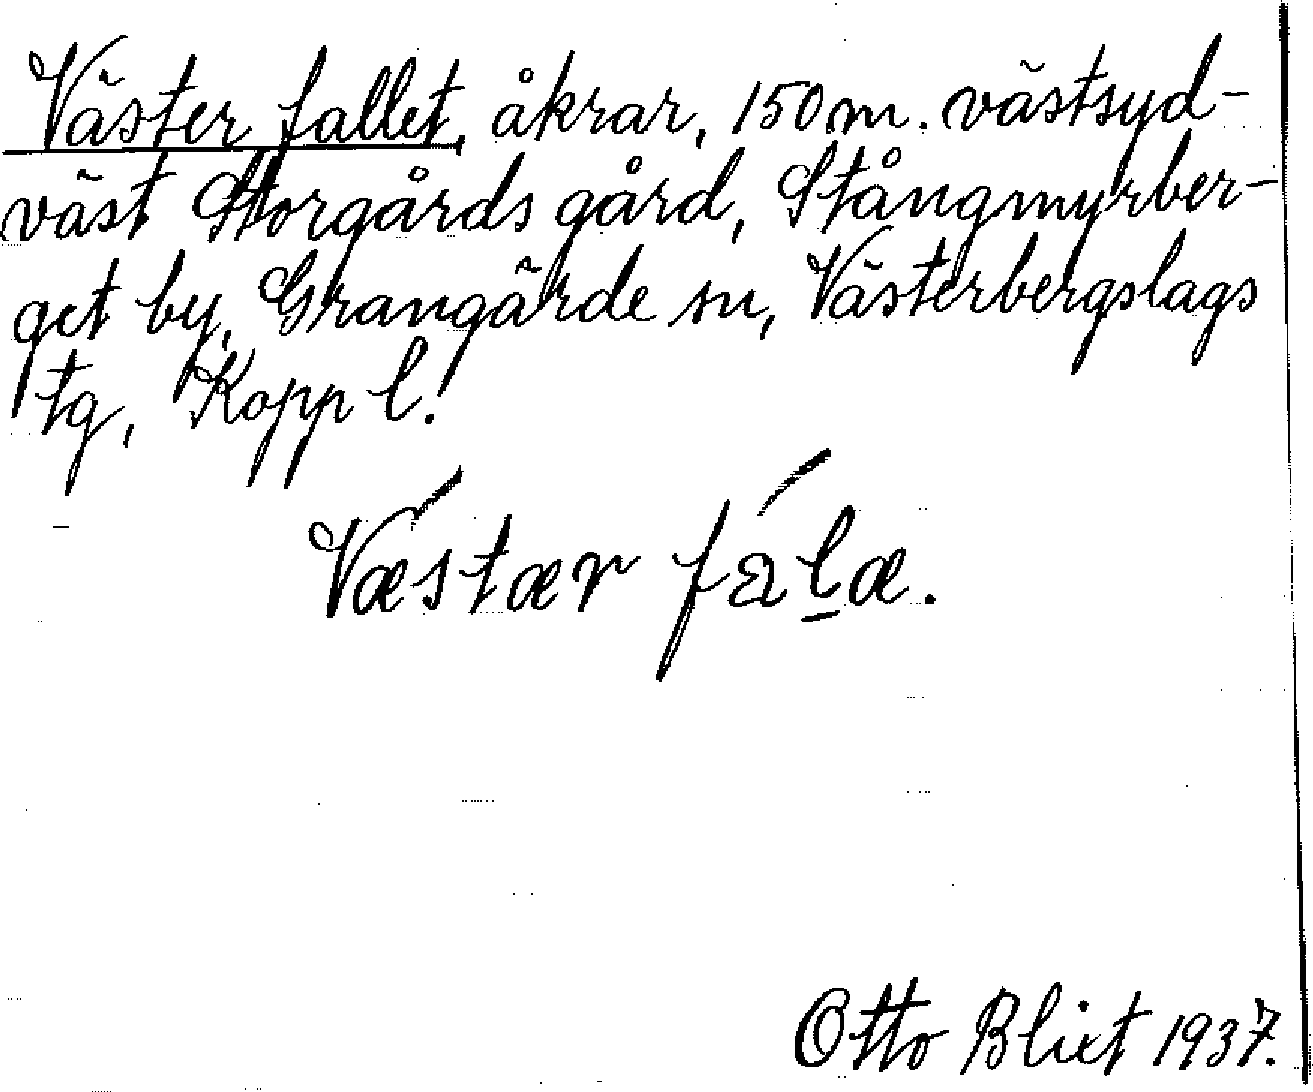 Väster fallet, åkrar, 150 m. västsyd-
väst Storgårds gård, Stångmyrber-
get by, Grangärde sn, Västerbergslags
tg, Kopp l.
Væstær fala.
Otto Blixt 1937.